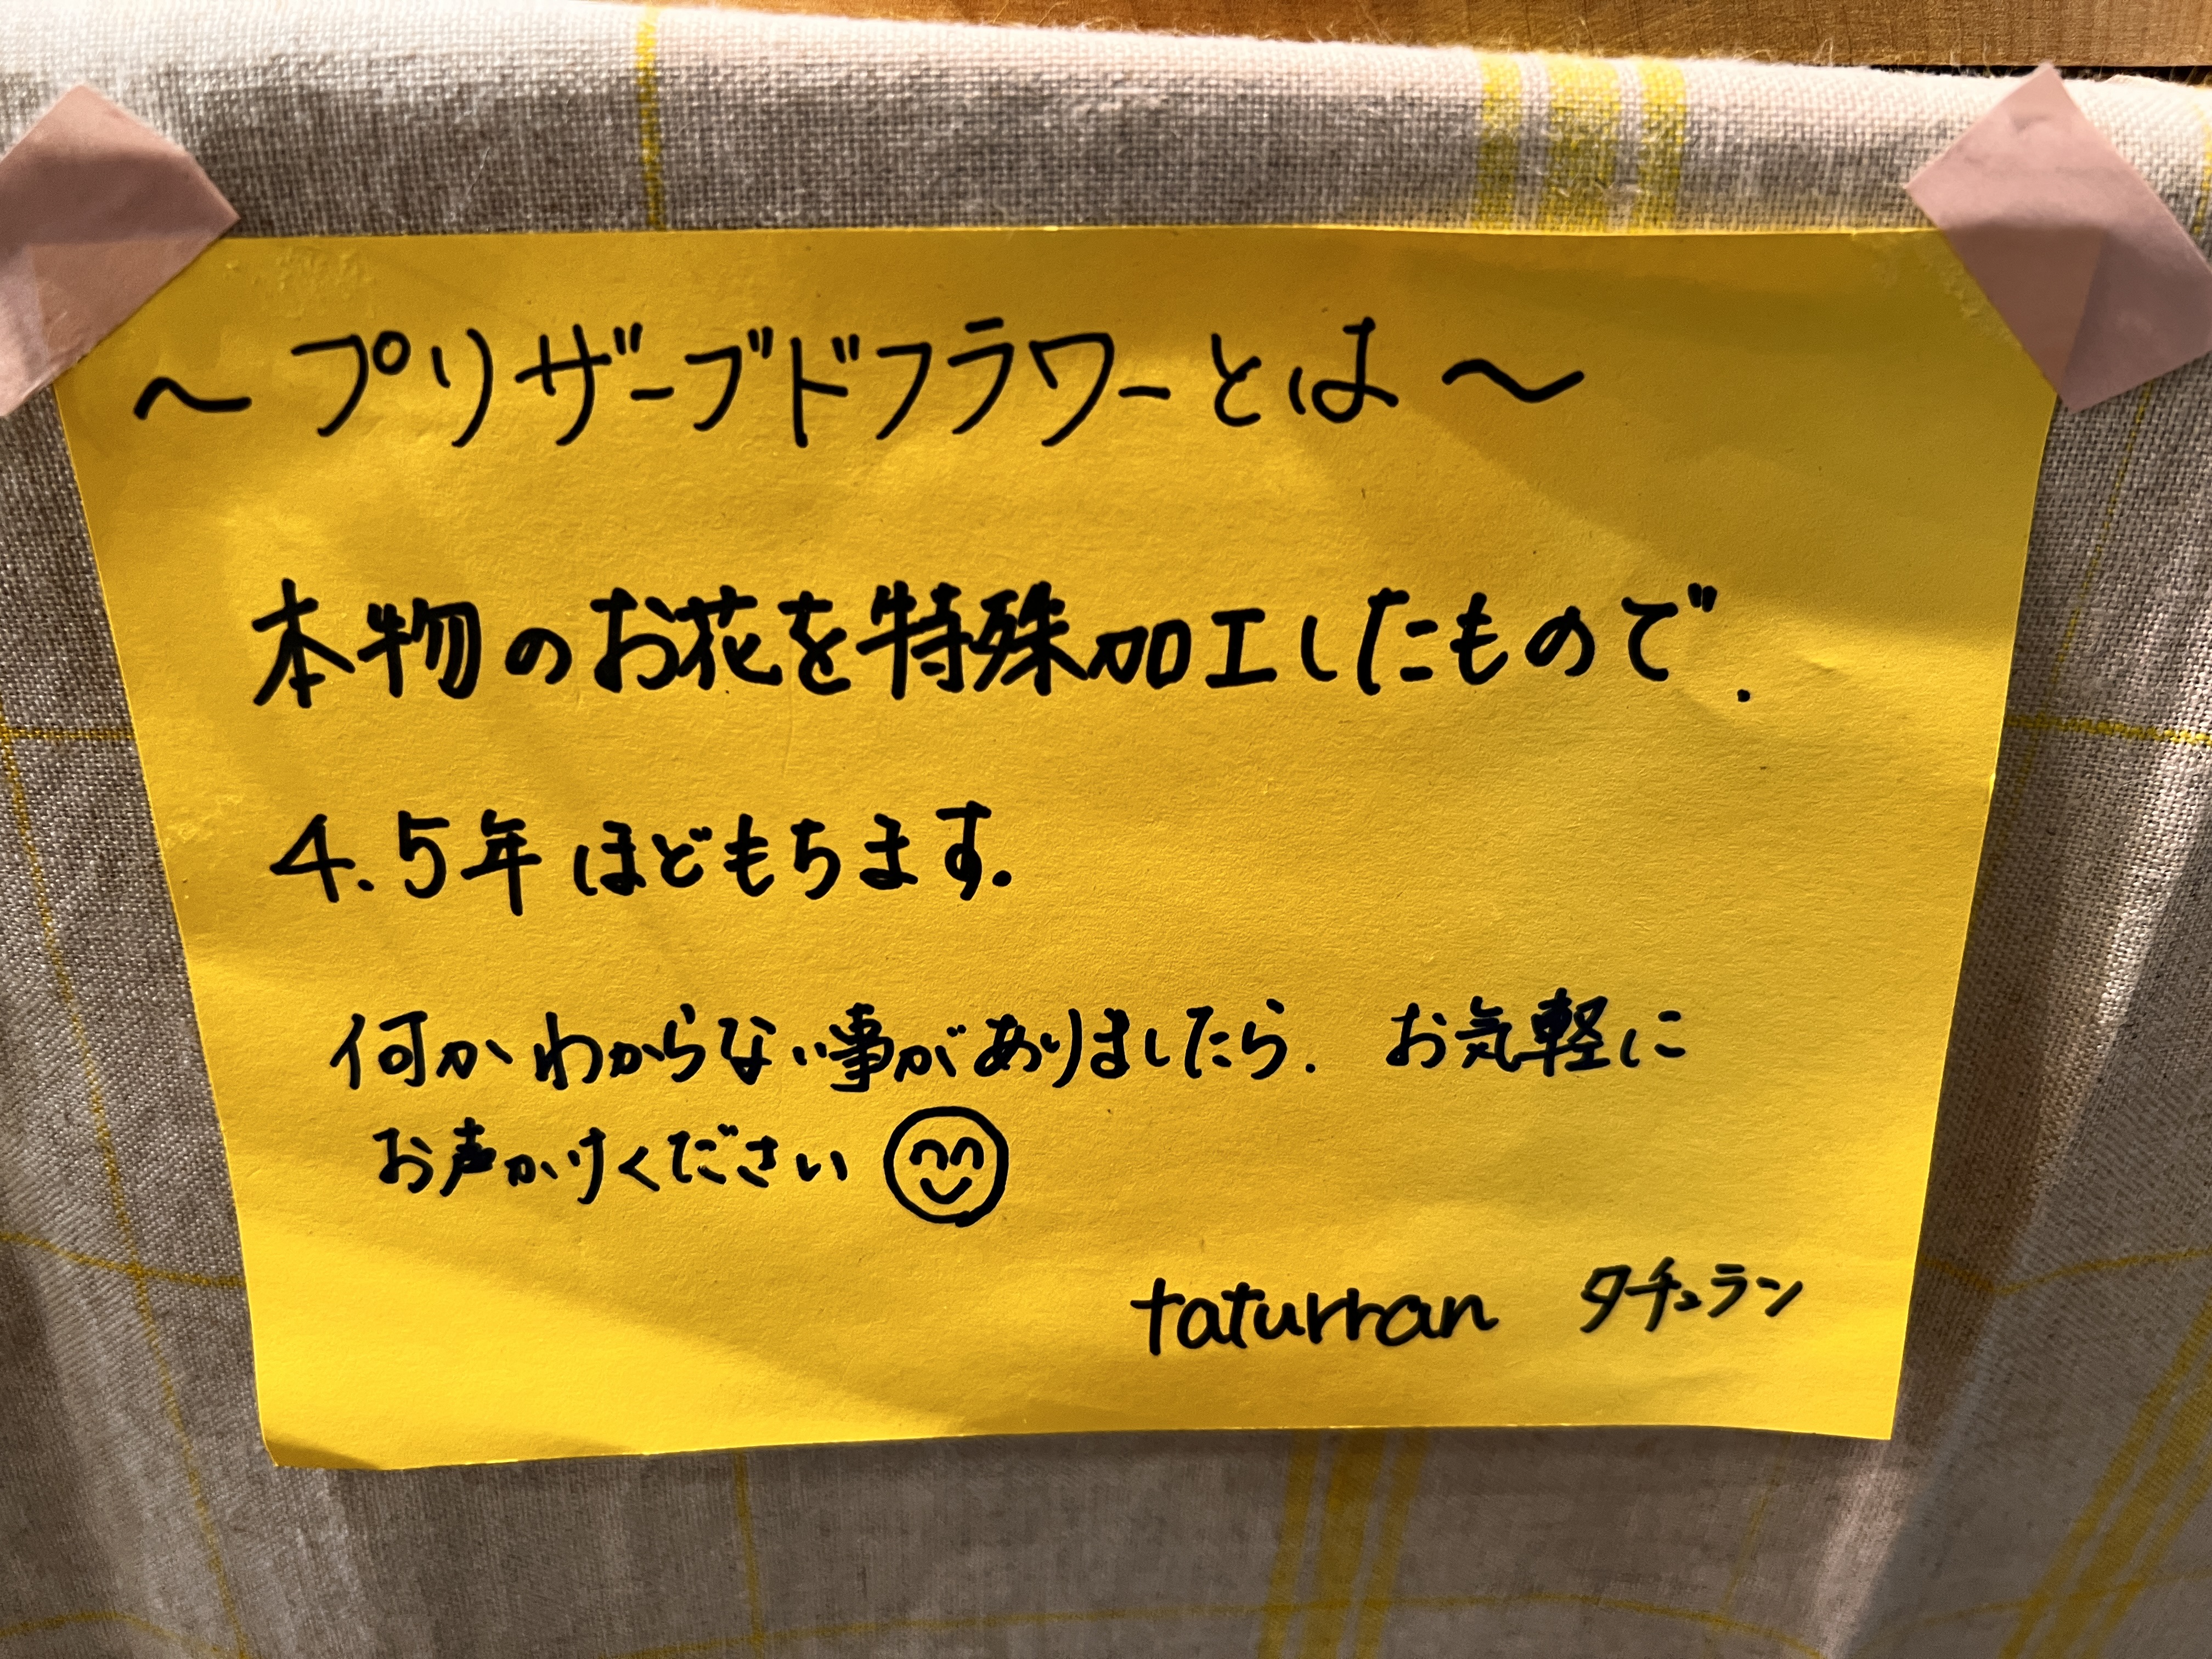 ～プリザーブドフラワーとは～
本物のお花を特殊加工したもので.
4.5年ほどもちます.
何かわからない事がありましたら. お気軽に
お声かけください
taturran タチュラン